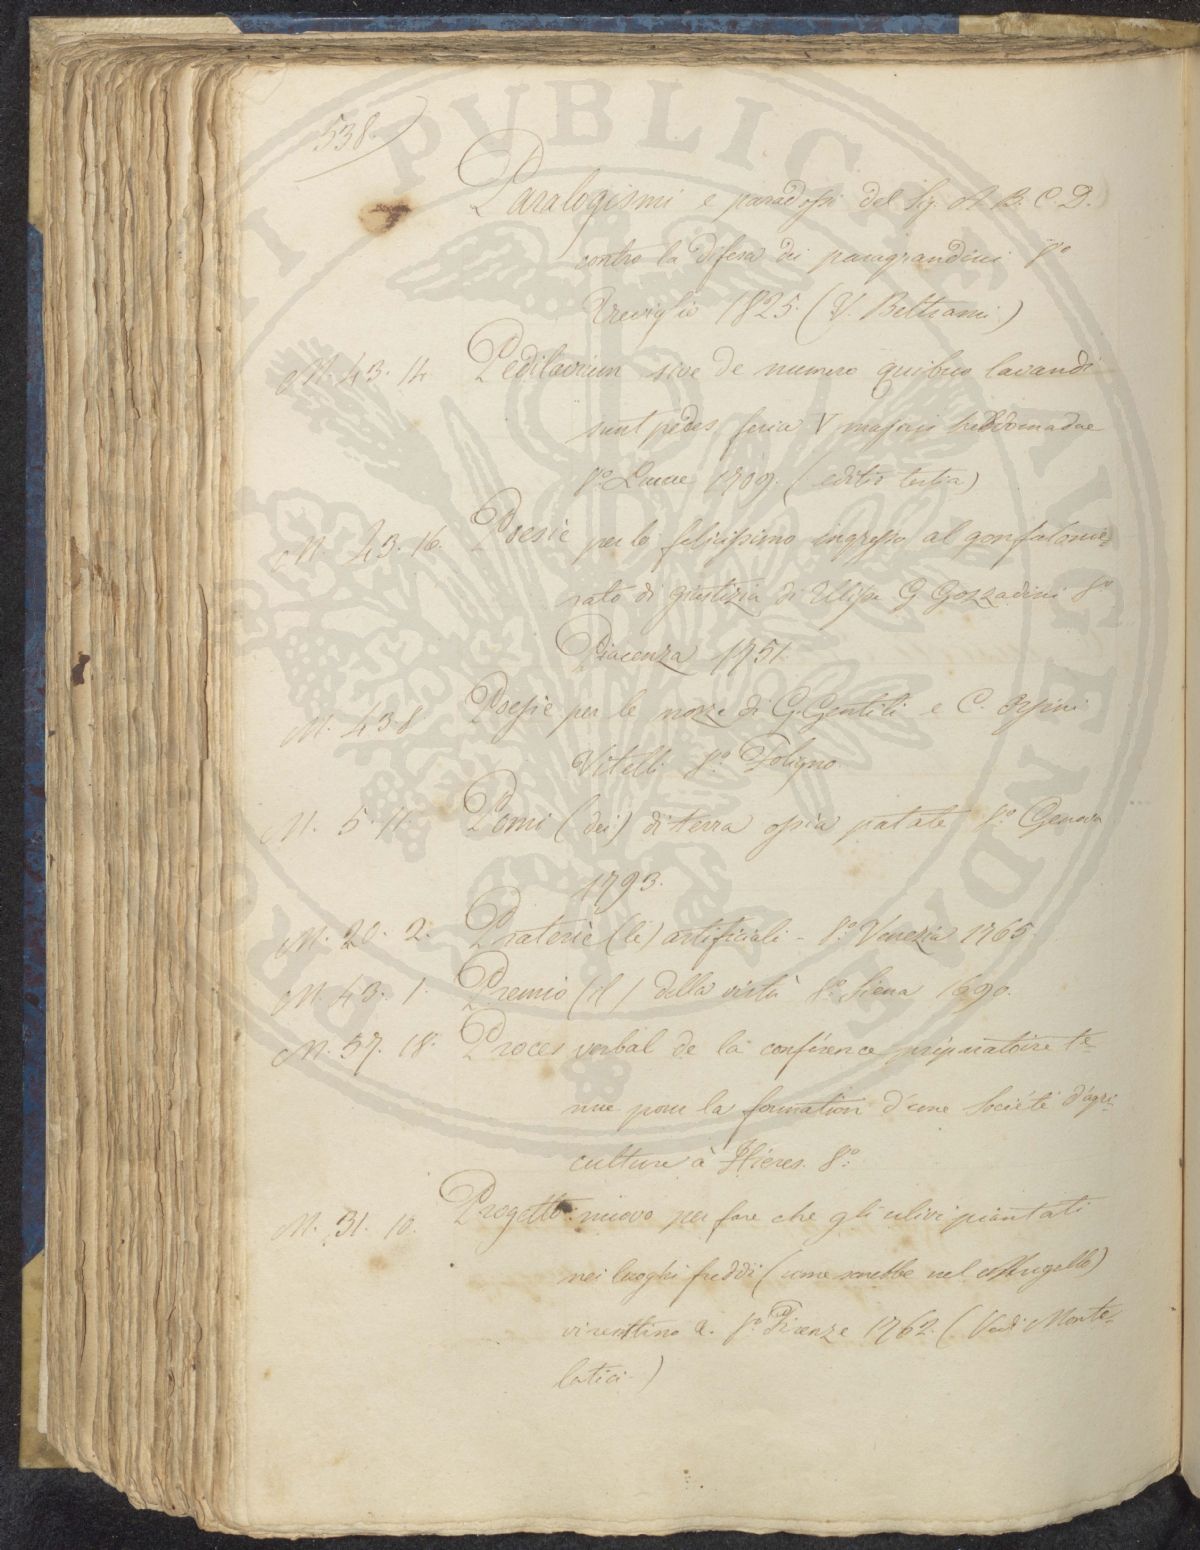 538.
Paralogismi e paradossi del Sig. A. B. C. D.
contro la difesa dei paragrandini 8º
Treviglio 1825. (V. Beltrami)
M. 43. 14. Pedilavium sive de numero quibus lavandi
sunt pedes feria V majoris hebdomadae
8º Lucae 1709. (editio tertia)
M. 43. 16. Poesie per lo felicissimo ingresso al gonfalonie=
rato di giustizia di Ulisse G Gozzadini 8º
Piacenza 1751.
M. 43 8 Poesie per le nozze di G. Gentili e C. Orsini
Vitelli 8º Foligno
M. 5. 11. Pomi (dei) di terra ossia patate 8º Genova
1793.
M. 20. 2. Praterie (le) artificiali - 8º Venezia 1765.
M. 43. 1. Premio (il) della virtù 8º Siena 1690.
M. 37. 18. Proces verbal de la conférence préparatoire te=
nue pour la formation d'une Société d'agri=
culture à Hieres. 8º
M. 31. 10. Progetto nuovo per fare che gli ulivi piantati
nei luoghi freddi (come sarebbe nel Mugello)
8º Firenze 1762. (Vedi Monte=
latici-)
PUBLICAE